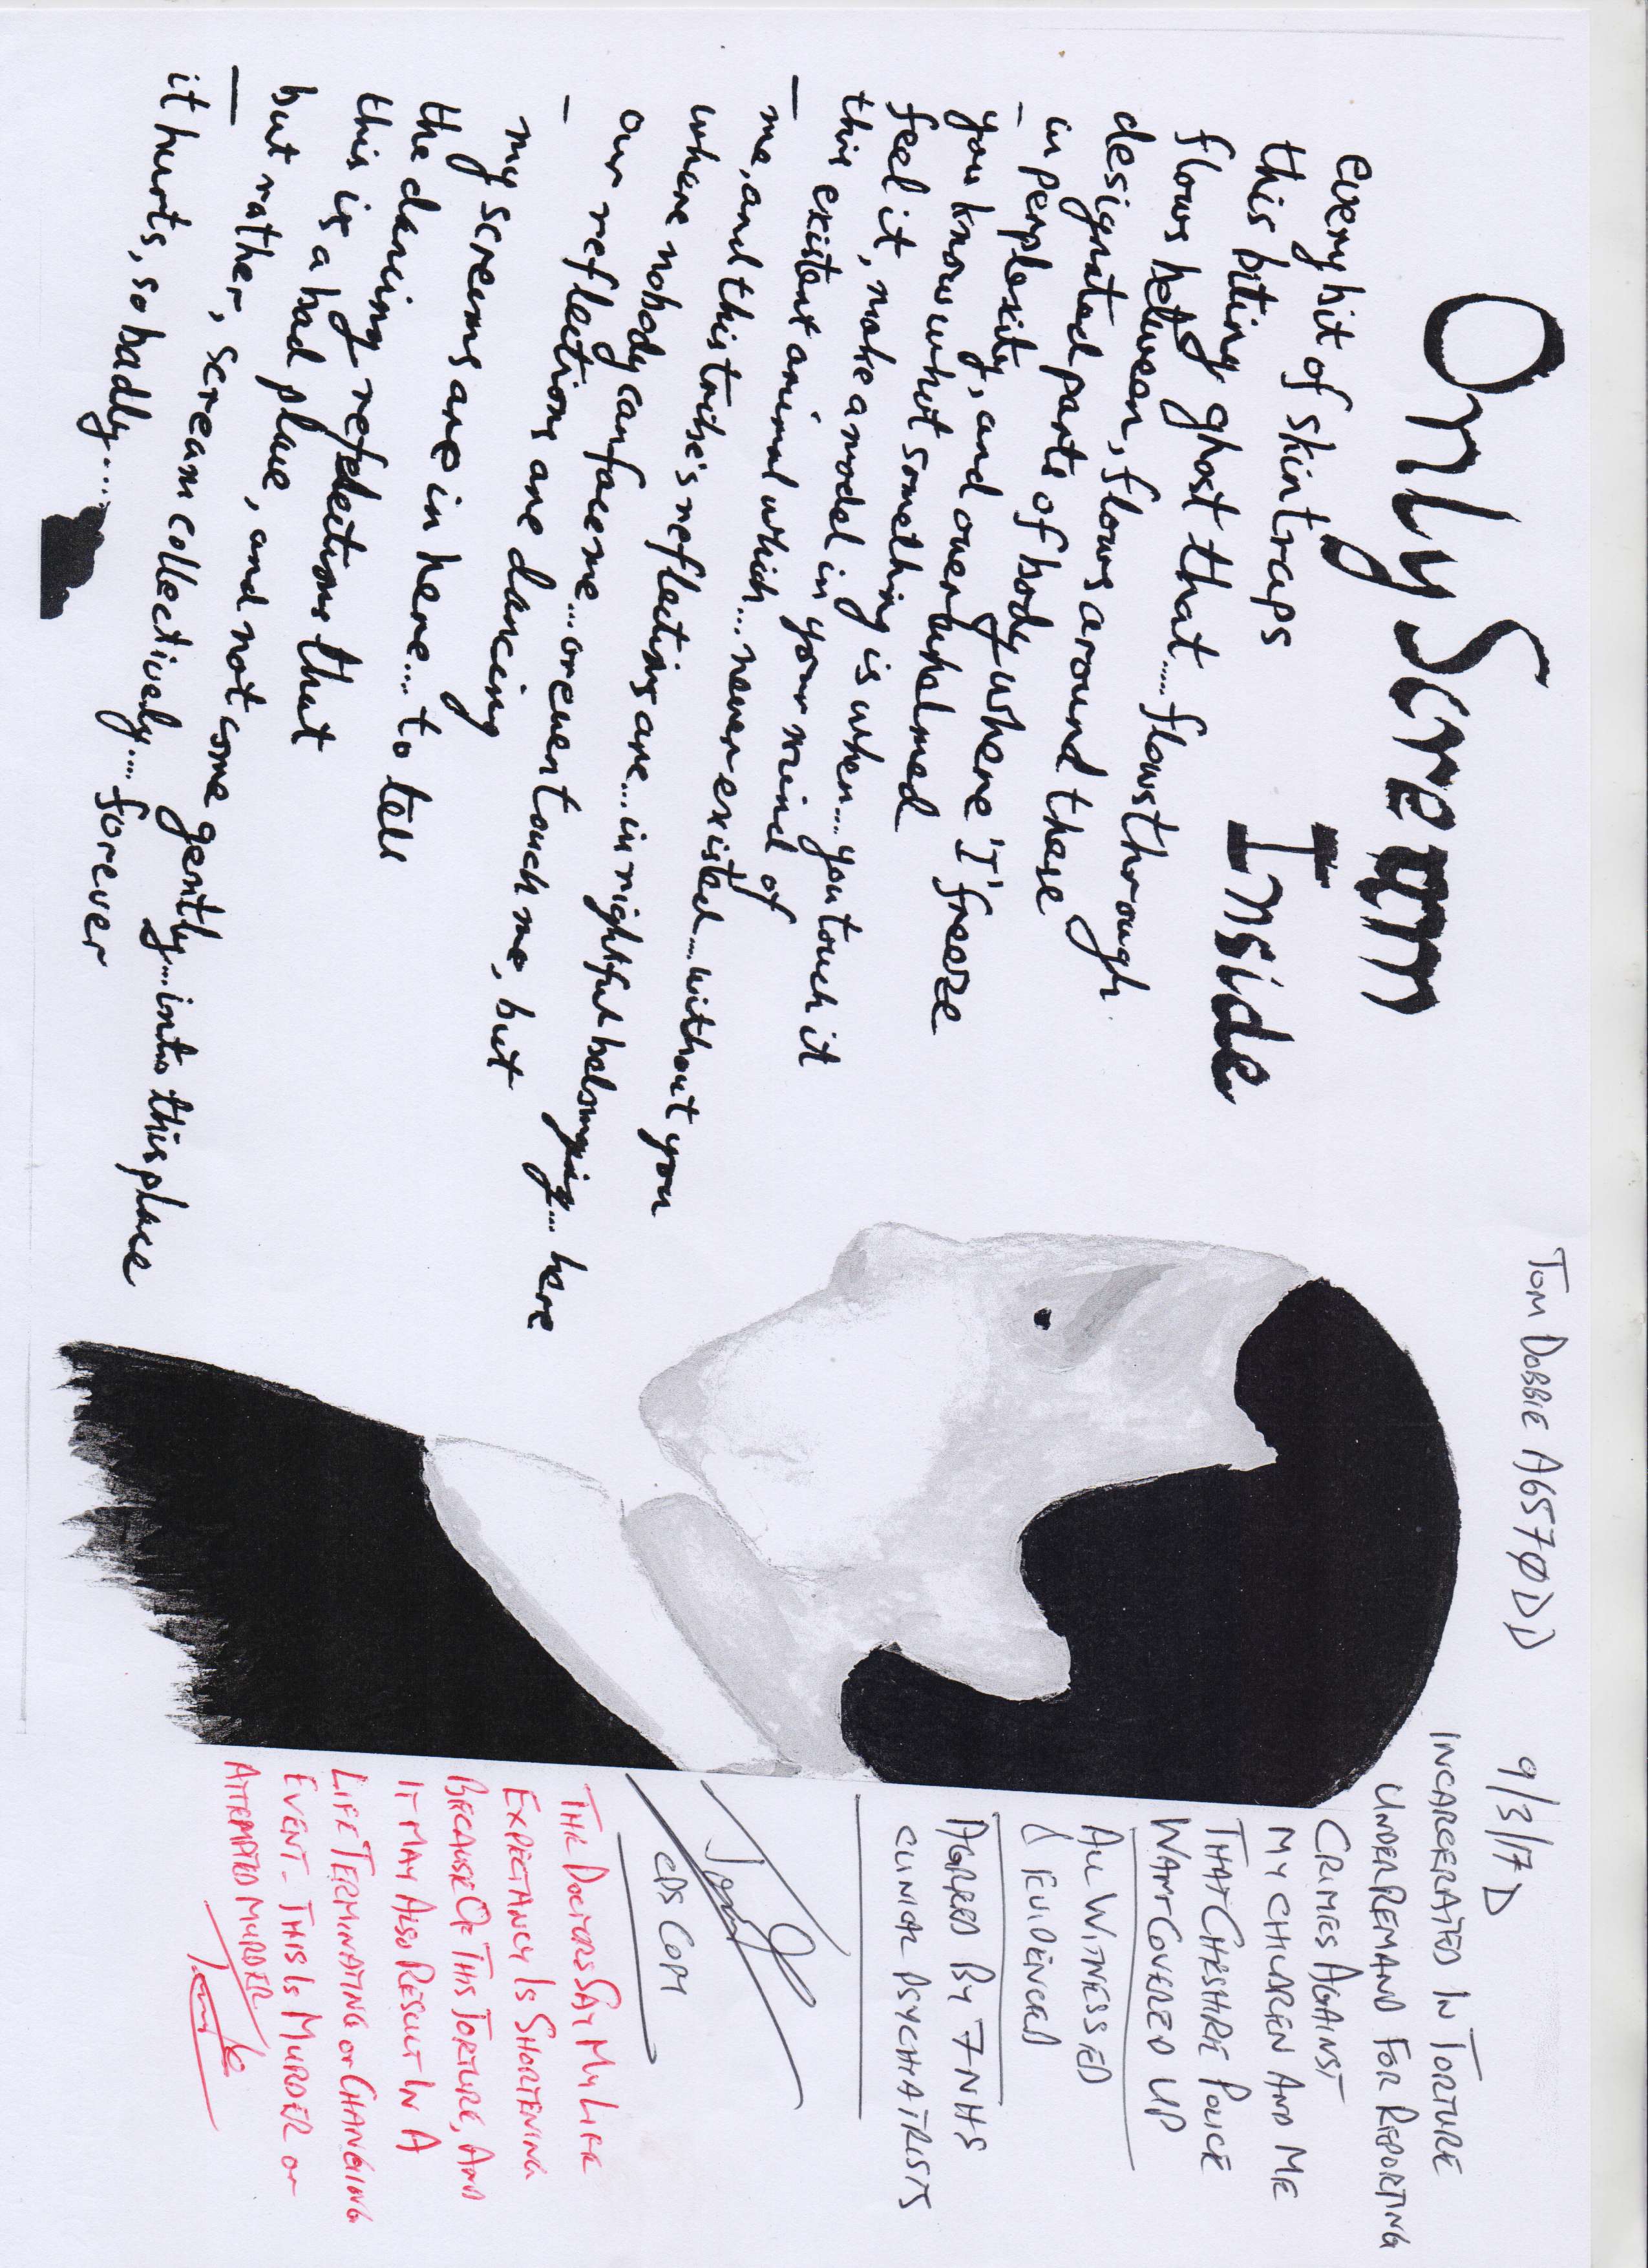 Only Scream
Inside
every bit of skin traps
this biting ghost that..... flows through
flows between, flows around these
designated parts of body where 'I' freeze
in perplexity, and over
you know what something is when.... you touch it
feel it, make a model in your mind of
this existent animal which.... never existed.... without you
me, and this tribe's reflections are.... in rightful belonging.... here
where nobody can face me.... or even touch me, but
our reflections are dancing
my screams are in here.... to tell
the dancing reflections that
this is a bad place, and not come gently.... into this place
but rather, scream collectively.... forever
it hurts, so badly....
TOM DOBBIE A6570DD 9/3/17 D
INCARCERATED IN TORTURE
UNDER REMAND FOR REPORTING
CRIMES AGAINST
MY CHILDREN AND ME
THAT CHESHIRE POLICE
WANT COVERED UP
ALL WITNESSED
& EVIDENCED
AGREED BY 7 NHS
CLINICAL PSYCHIATRISTS
Tom
CPS COPY
THE DOCTORS SAY MY LIFE
EXPECTANCY IS SHORTENING
BECAUSE OF THIS TORTURE, AND
IT MAY ALSO RESULT IN A
LIFE TERMINATING OR CHANGING
EVENT - THIS IS MURDER OR
ATTEMPTED MURDER